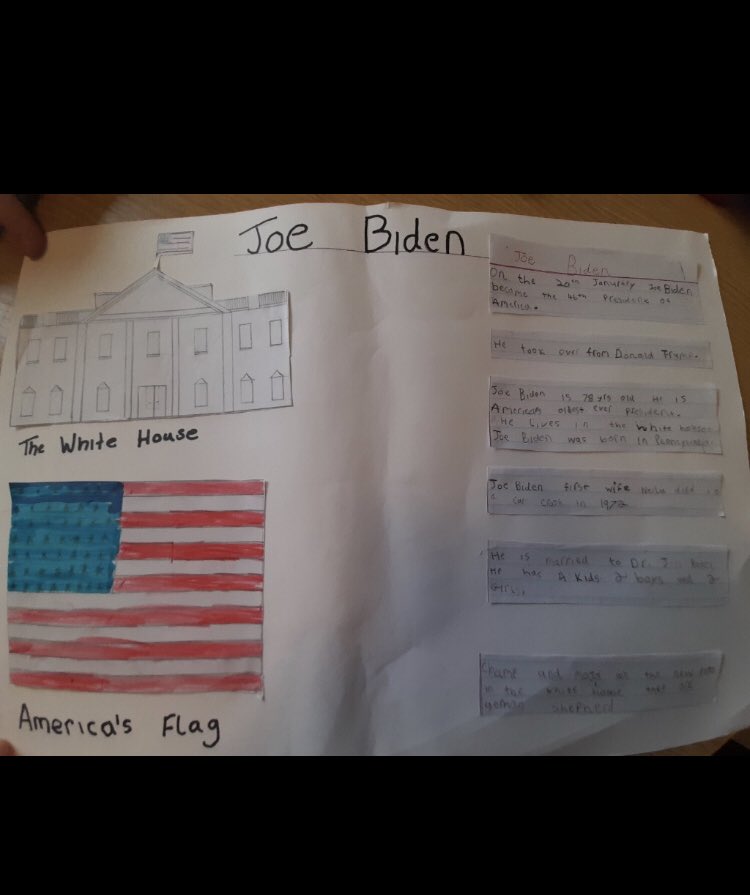 Joe Biden
The White House
America's Flag
Joe Biden
On the 20th Janurary Joe Biden
became the 46th President of
America.
He took over from Donald Trump.
Joe Biden is 78 yrs old He is
Americas oldest ever president.
He lives in the White house
Joe Biden was born in
Joe Biden first wife Neila died in
a car crash in 1972
He is married to Dr. J
He has 4 kids 2 boys and 2
Girls
and on the new
in the White house they are
shepherd